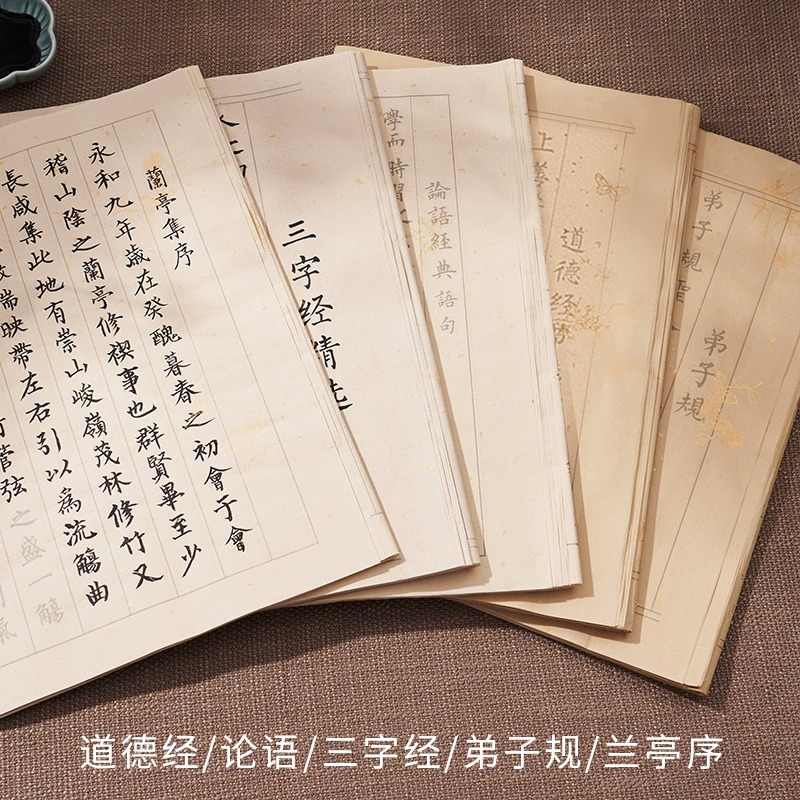 蘭亭集序
永和九年歲在癸醜暮春之初會于會
稽山陰之蘭亭修禊事也群賢畢至少
長咸集此地有崇山峻嶺茂林修竹又
映帶左右引以為流觴曲
管弦之盛一觴
三字经精选
論語經典語句
學而時習
道德经
上善
弟子規
弟子規聖
道德经/论语/三字经/弟子规/兰亭序